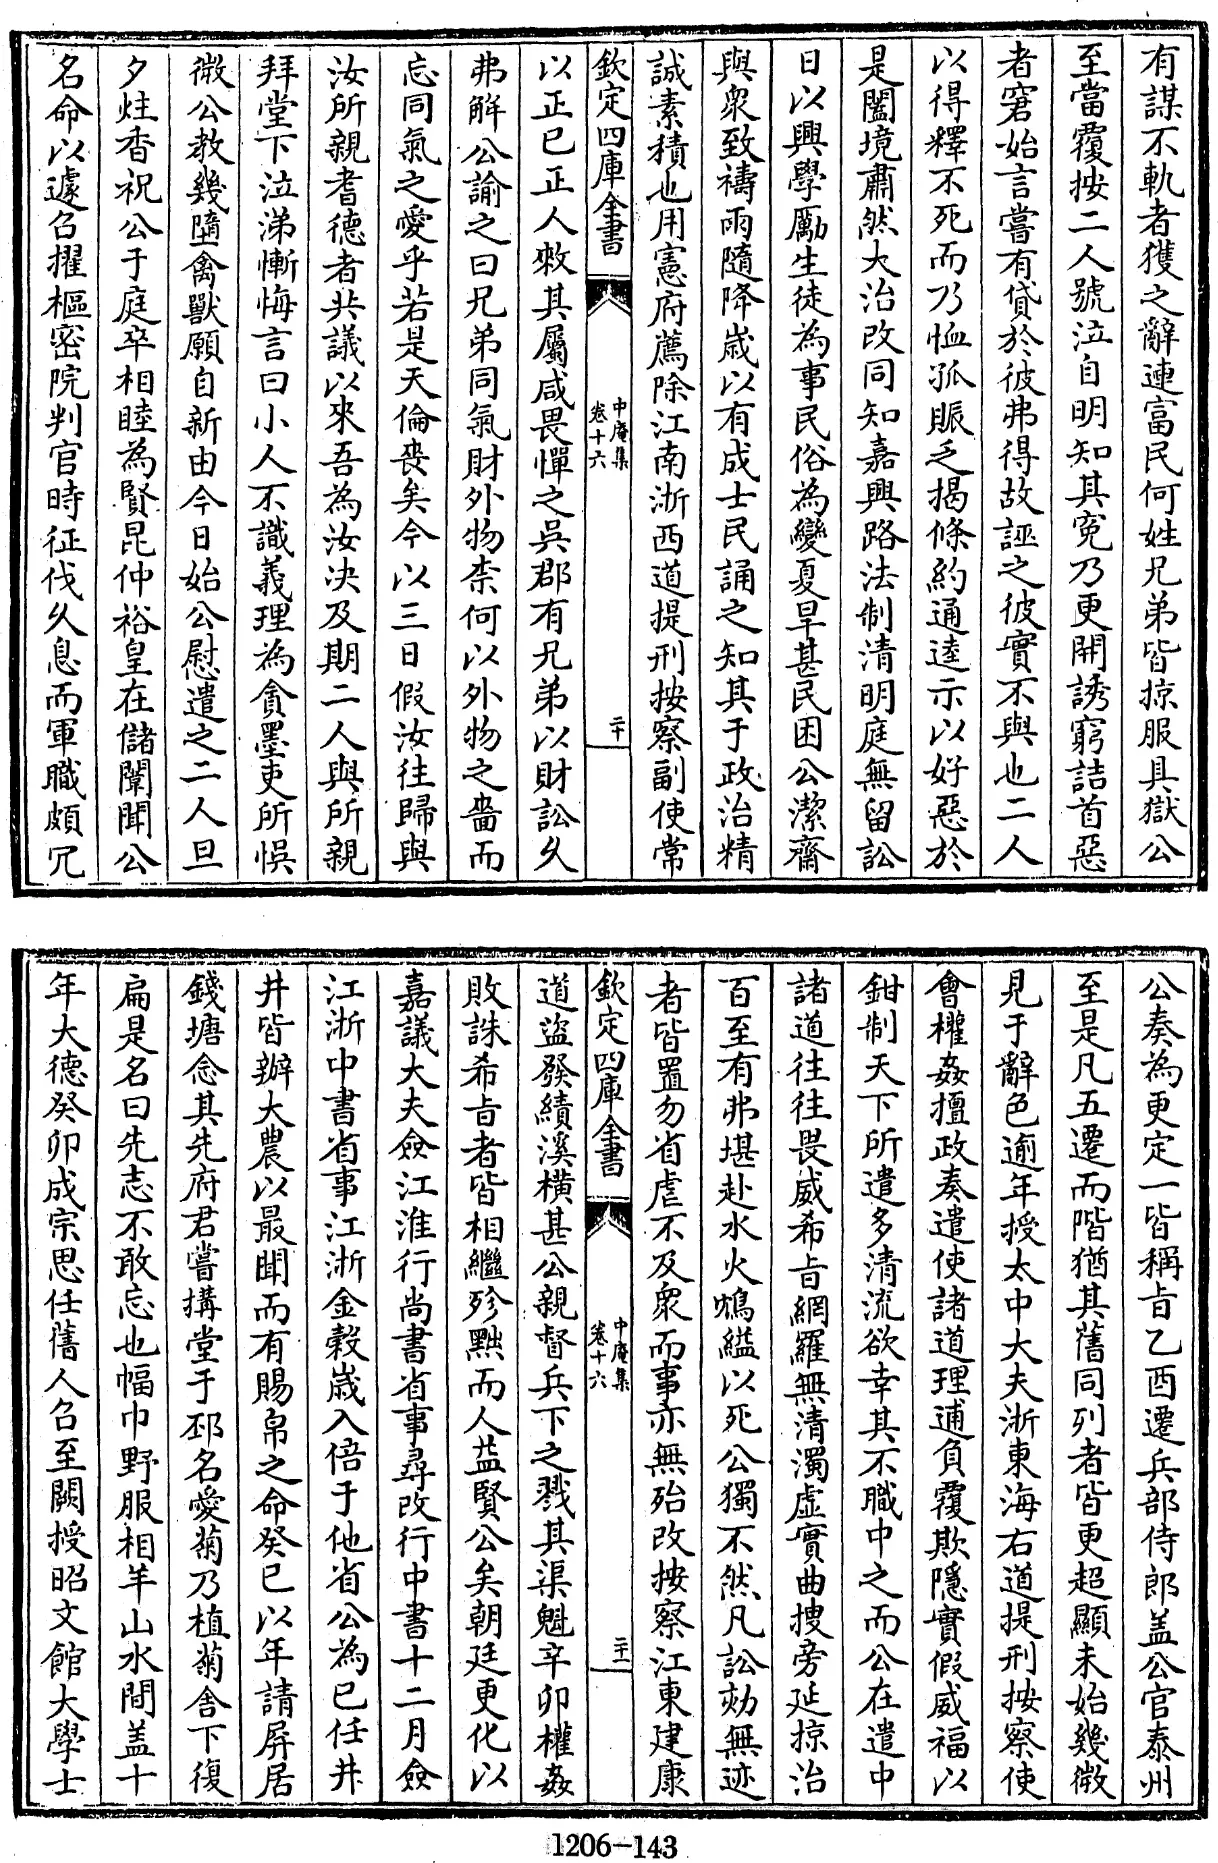 有謀不軌者獲之辭連富民何姓兄弟皆掠服具獄公
至當覆按二人號泣自明知其寃乃更開誘窮詰首惡
者窘始言嘗有貸於彼弗得故誣之彼實不與也二人
以得釋不死而乃恤孤賑乏揭條約通逵示以好惡於
是闔境肅然大治改同知嘉興路法制清明庭無留訟
日以興學勵生徒為事民俗為變夏旱甚民困公潔齋
與衆致禱雨隨降歳以有成士民誦之知其于政治精
誠素積也用憲府薦除江南浙西道提刑按察副使常
欽定四庫全書
中庵集
卷十六
二十
以正已正人敕其屬咸畏憚之吳郡有兄弟以財訟久
弗解公諭之曰兄弟同氣財外物柰何以外物之嗇而
忘同氣之愛乎若是天倫喪矣今以三日假汝往歸與
汝所親耆德者共議以來吾為汝决及期二人與所親
拜堂下泣涕慚悔言曰小人不識義理為貪墨吏所悞
微公教幾墮禽獸願自新由今日始公慰遣之二人旦
夕炷香祝公于庭卒相睦為賢昆仲裕皇在儲闈聞公
名命以遽召擢樞密院判官時征伐久息而軍職頗冗
公奏為更定一皆稱㫖乙酉遷兵部侍郎盖公官泰州
至是凡五遷而階猶其舊同列者皆更超顯未始幾微
見于辭色逾年授太中大夫浙東海右道提刑按察使
會權姦擅政奏遣使諸道理逋負覆欺隱實假威福以
鉗制天下所遣多清流欲幸其不職中之而公在遣中
諸道往往畏威希㫖網羅無清濁虛實曲搜旁延掠治
百至有弗堪赴水火鴆縊以死公獨不然凡訟劾無迹
者皆置勿省虐不及衆而事亦無殆改按察江東建康
欽定四庫全書
中庵集
卷十六
二十一
道盜發績溪横甚公親督兵下之戮其渠魁辛卯權姦
敗誅希㫖者皆相繼殄黜而人益賢公矣朝廷更化以
嘉議大夫僉江淮行尚書省事尋改行中書十二月僉
江浙中書省事江浙金穀歳入倍于他省公為已任井
井皆辦大農以最聞而有賜帛之命癸巳以年請屏居
錢塘念其先府君嘗搆堂于邳名愛菊乃植菊舎下復
扁是名曰先志不敢忘也幅巾野服相羊山水間盖十
年大德癸卯成宗思任舊人召至闕授昭文館大學士
1206-143